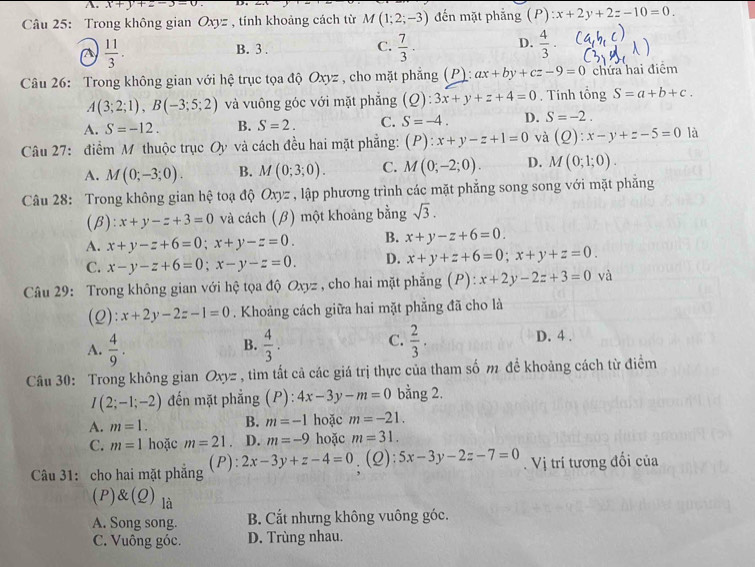 A. x + y + z − 3 = 0.
Câu 25: Trong không gian Oxyz, tính khoảng cách từ M(1;2;−3) đến mặt phẳng (P): x + 2y + 2z − 10 = 0.
A. 11/3. B. 3. C. 7/3. D. 4/3. (a, b, c)
Câu 26: Trong không gian với hệ trục tọa độ Oxyz, cho mặt phẳng (P): ax + by + cz − 9 = 0 chứa hai điểm
A(3;2;1), B(−3;5;2) và vuông góc với mặt phẳng (Q): 3x + y + z + 4 = 0. Tính tổng S = a + b + c.
A. S = −12. B. S = 2. C. S = −4. D. S = −2.
Câu 27: điểm M thuộc trục Oy và cách đều hai mặt phẳng: (P): x + y − z + 1 = 0 và (Q): x − y + z − 5 = 0 là
A. M(0;−3;0). B. M(0;3;0). C. M(0;−2;0). D. M(0;1;0).
Câu 28: Trong không gian hệ toạ độ Oxyz, lập phương trình các mặt phẳng song song với mặt phẳng
(β): x + y − z + 3 = 0 và cách (β) một khoảng bằng √3.
A. x + y − z + 6 = 0; x + y − z = 0. B. x + y − z + 6 = 0.
C. x − y − z + 6 = 0; x − y − z = 0. D. x + y + z + 6 = 0; x + y + z = 0.
Câu 29: Trong không gian với hệ tọa độ Oxyz, cho hai mặt phẳng (P): x + 2y − 2z + 3 = 0 và
(Q): x + 2y − 2z − 1 = 0. Khoảng cách giữa hai mặt phẳng đã cho là
A. 4/9. B. 4/3. C. 2/3. D. 4.
Câu 30: Trong không gian Oxyz, tìm tất cả các giá trị thực của tham số m để khoảng cách từ điểm
I(2;−1;−2) đến mặt phẳng (P): 4x − 3y − m = 0 bằng 2.
A. m = 1. B. m = −1 hoặc m = −21.
C. m = 1 hoặc m = 21. D. m = −9 hoặc m = 31.
Câu 31: cho hai mặt phẳng (P): 2x − 3y + z − 4 = 0; (Q): 5x − 3y − 2z − 7 = 0. Vị trí tương đối của
(P)&(Q) là
A. Song song. B. Cắt nhưng không vuông góc.
C. Vuông góc. D. Trùng nhau.